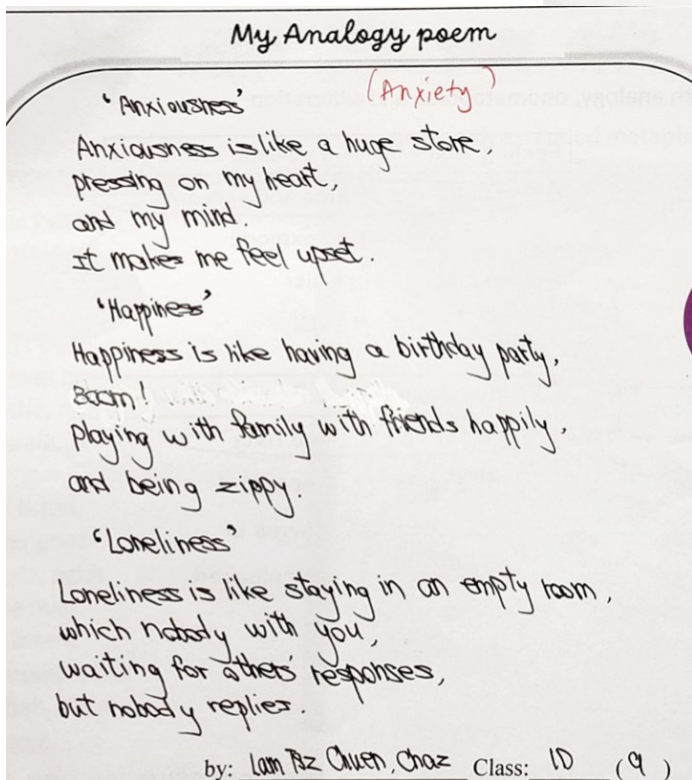 My Analogy poem
'Anxiousness' (Anxiety)
Anxiousness is like a huge stone,
pressing on my heart,
and my mind.
It makes me feel upset.
'Happiness'
Happiness is like having a birthday party,
Boom!
playing with family with friends happily,
and being zippy.
'Loneliness'
Loneliness is like staying in an empty room,
which nobody with you,
waiting for others' responses,
but nobody replies.
by: Lam Tsz Chuen, Chaz Class: 1D (9)